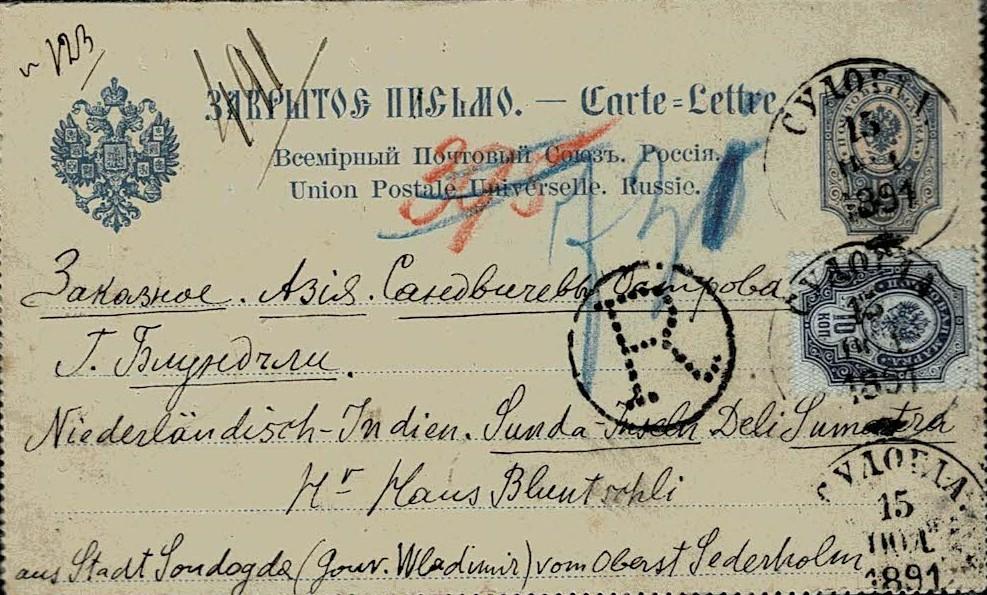 № 123
491
ЗАКРЫТОЕ ПИСЬМО. — Carte=Lettre.
Всемірный Почтовый Союзъ. Россія.
Union Postale Universelle. Russie.
395
СУДОГДА
15
1891
Заказное. Азія. Сандвичевы Острова
Г. Блундчли.
СУДОГДА
15
1891
Niederländisch-Indien. Sunda-Inseln Deli Sumatra
R
Hr Hans Bluntschli
aus Stadt Soudogda (Gouv. Wladimir) vom Oberst Sederholm
СУДОГДА
15
1891